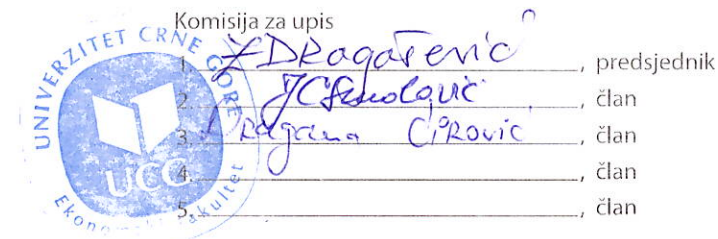 Komisija za upis
1. Z Dragašević, predsjednik
2. , član
3. Dragana Ćirović, član
4. , član
5. , član
UNIVERZITET CRNE GORE
UCG
Ekonomski fakultet